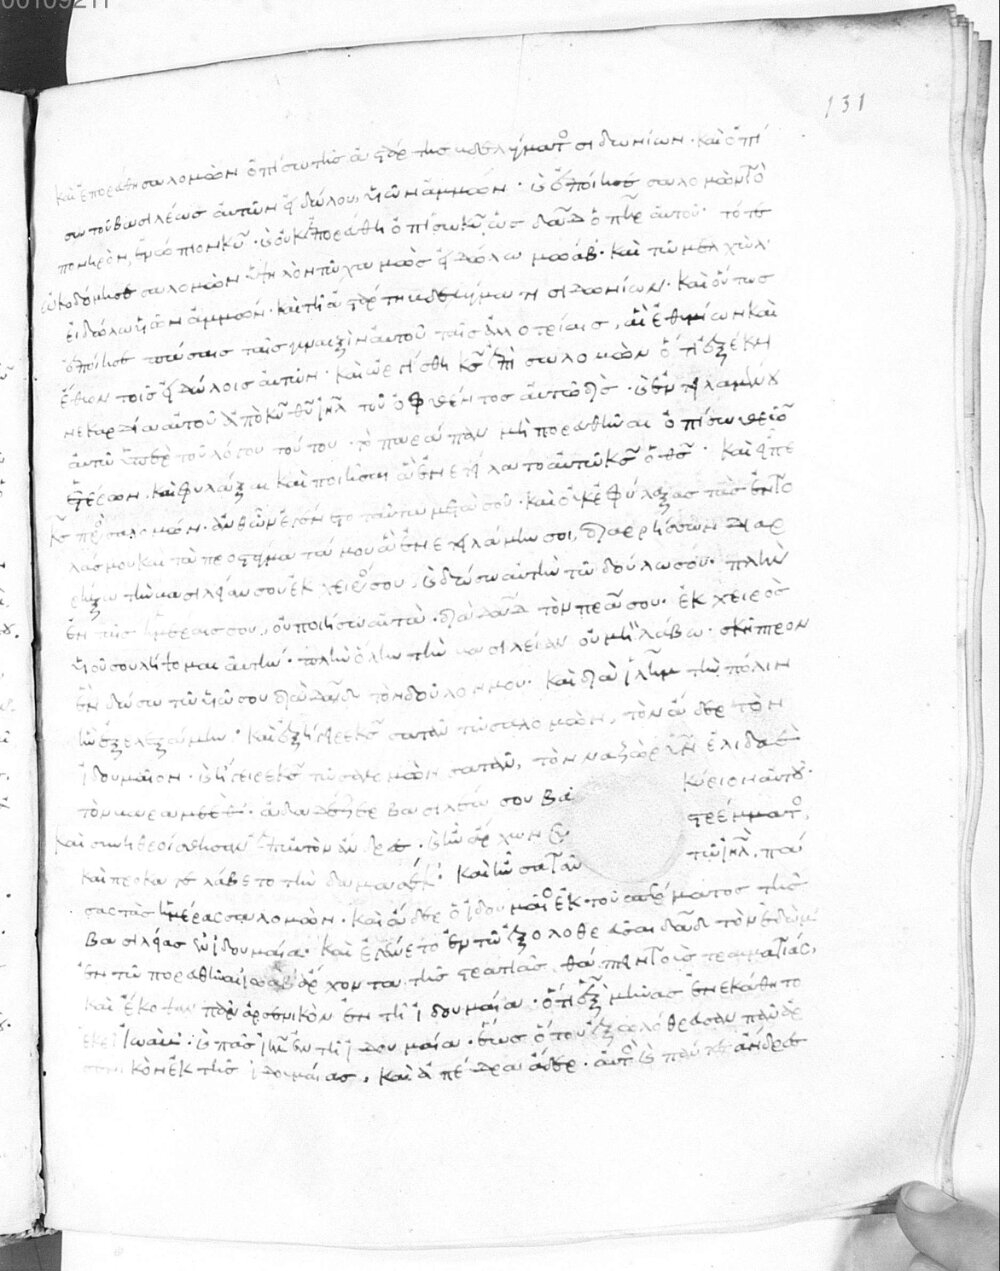 131
καὶ ἐπορεύθη σαλομὼν ὀπίσω τῆς ἀστάρτης βδελύγματος σιδωνίων· καὶ ὀπί
σω τοῦ βασιλέως αὐτῶν εἰδώλου υἱῶν ἀμμών· καὶ ἐποίησε σαλομὼν τὸ
πονηρὸν ἐνώπιον κυ· καὶ οὐκ ἐπορεύθη ὀπίσω κυ, ὡς δαδ ὁ πηρ αὐτοῦ· τότε
ὠκοδόμησε σαλομὼν ὑψηλὸν τῷ χαμὼς εἰδώλω μωάβ· καὶ τῷ μελχὼλ
εἰδώλω υἱῶν ἀμμών· καὶ τῇ ἀστάρτη βδελύγματι σιδωνίων· καὶ οὕτως
ἐποίησε πάσαις ταῖς γυναιξὶν αὐτοῦ ταῖς ἀλλοτρίαις, αἳ ἐθυμίων καὶ
ἔθυον τοῖς εἰδώλοις αὐτῶν· καὶ ὠργίσθη κς ἐπὶ σαλομὼν ὅτι ἐξέκλι
νε καρδίαν αὐτοῦ ἀπὸ κυ θυ ιηλ τοῦ ὀφθέντος αὐτῷ δὶς· καὶ ἐντειλαμένου
αὐτῷ ὑπὲρ τοῦ λόγου τούτου· τὸ παράπαν μὴ πορευθῆναι ὀπίσω θεῶν
ἑτέρων· καὶ φυλάξαι καὶ ποιῆσαι ἃ ἐνετείλατο αὐτῷ κς ὁ θς· καὶ εἶπε
κς πρὸς σαλομών· ἀνθ' ὧν ἐγένετο ταῦτα μετὰ σοῦ· καὶ οὐκ ἐφύλαξας τὰς ἐντο
λάς μου καὶ τὰ προστάγματά μου ἃ ἐνετειλάμην σοι, διαρρήσσων διαρ
ρήξω τὴν βασιλείαν σου ἐκ χειρός σου· καὶ δώσω αὐτὴν τῷ δούλω σου· πλὴν
ἐν ταῖς ἡμέραις σου, οὐ ποιήσω αὐτά· διὰ δαδ τὸν πρα σου· ἐκ χειρὸς
υἱοῦ σου λήψομαι αὐτήν· πλὴν ὅλην τὴν βασιλείαν οὐ μὴ λάβω· σκῆπτρον
ἓν δώσω τῷ υἱῷ σου διὰ δαδ τὸν δοῦλόν μου· καὶ διὰ ιλημ τὴν πόλιν
ἣν ἐξελεξάμην· καὶ ἐξήγειρε κς σατὰν τῷ σαλομών, τὸν ἄδερ τὸν
ἰδουμαῖον· καὶ ἤγειρε κς τῷ σαλομὼν σατάν, τὸν
τὸν βαραμεὲθ ἀδαδέζερ βασιλέως σουβὰ κύριον αὐτοῦ·
καὶ συνηθροίσθησαν ἐπ' αὐτὸν ἄνδρες· καὶ ἦν ἄρχων συ στρέμματος,
καὶ προκατελάβετο τὴν δαμασέκ· καὶ ἦν σατὰν τῷ ιηλ, πά
σας τὰς ἡμέρας σαλομών· καὶ ἄδερ ὁ ἰδουμαῖος ἐκ τοῦ σπέρματος τῆς
βασιλείας ἐν ἰδουμαία· καὶ ἐγένετο ἐν τῷ ἐξολοθρεῦσαι δαδ τὸν ἐδώμ·
ἐν τῷ πορευθῆναι ἰωὰβ ἄρχοντα τῆς στρατιᾶς, θάπτειν τοὺς τραυματίας,
καὶ ἔκοψαν πᾶν ἀρσενικὸν ἐν τῇ ἰδουμαία· ὅτι ἓξ μῆνας ἐνεκάθητο
ἐκεῖ ἰωάβ· καὶ πᾶς ιηλ ἐν τῇ ἰδουμαία· ἕως ὅτου ἐξωλόθρευσαν πᾶν ἀρ
σενικὸν ἐκ τῆς ἰδουμαίας, καὶ ἀπέδρα ἄδερ· αὐτὸς καὶ πάντες ἄνδρες